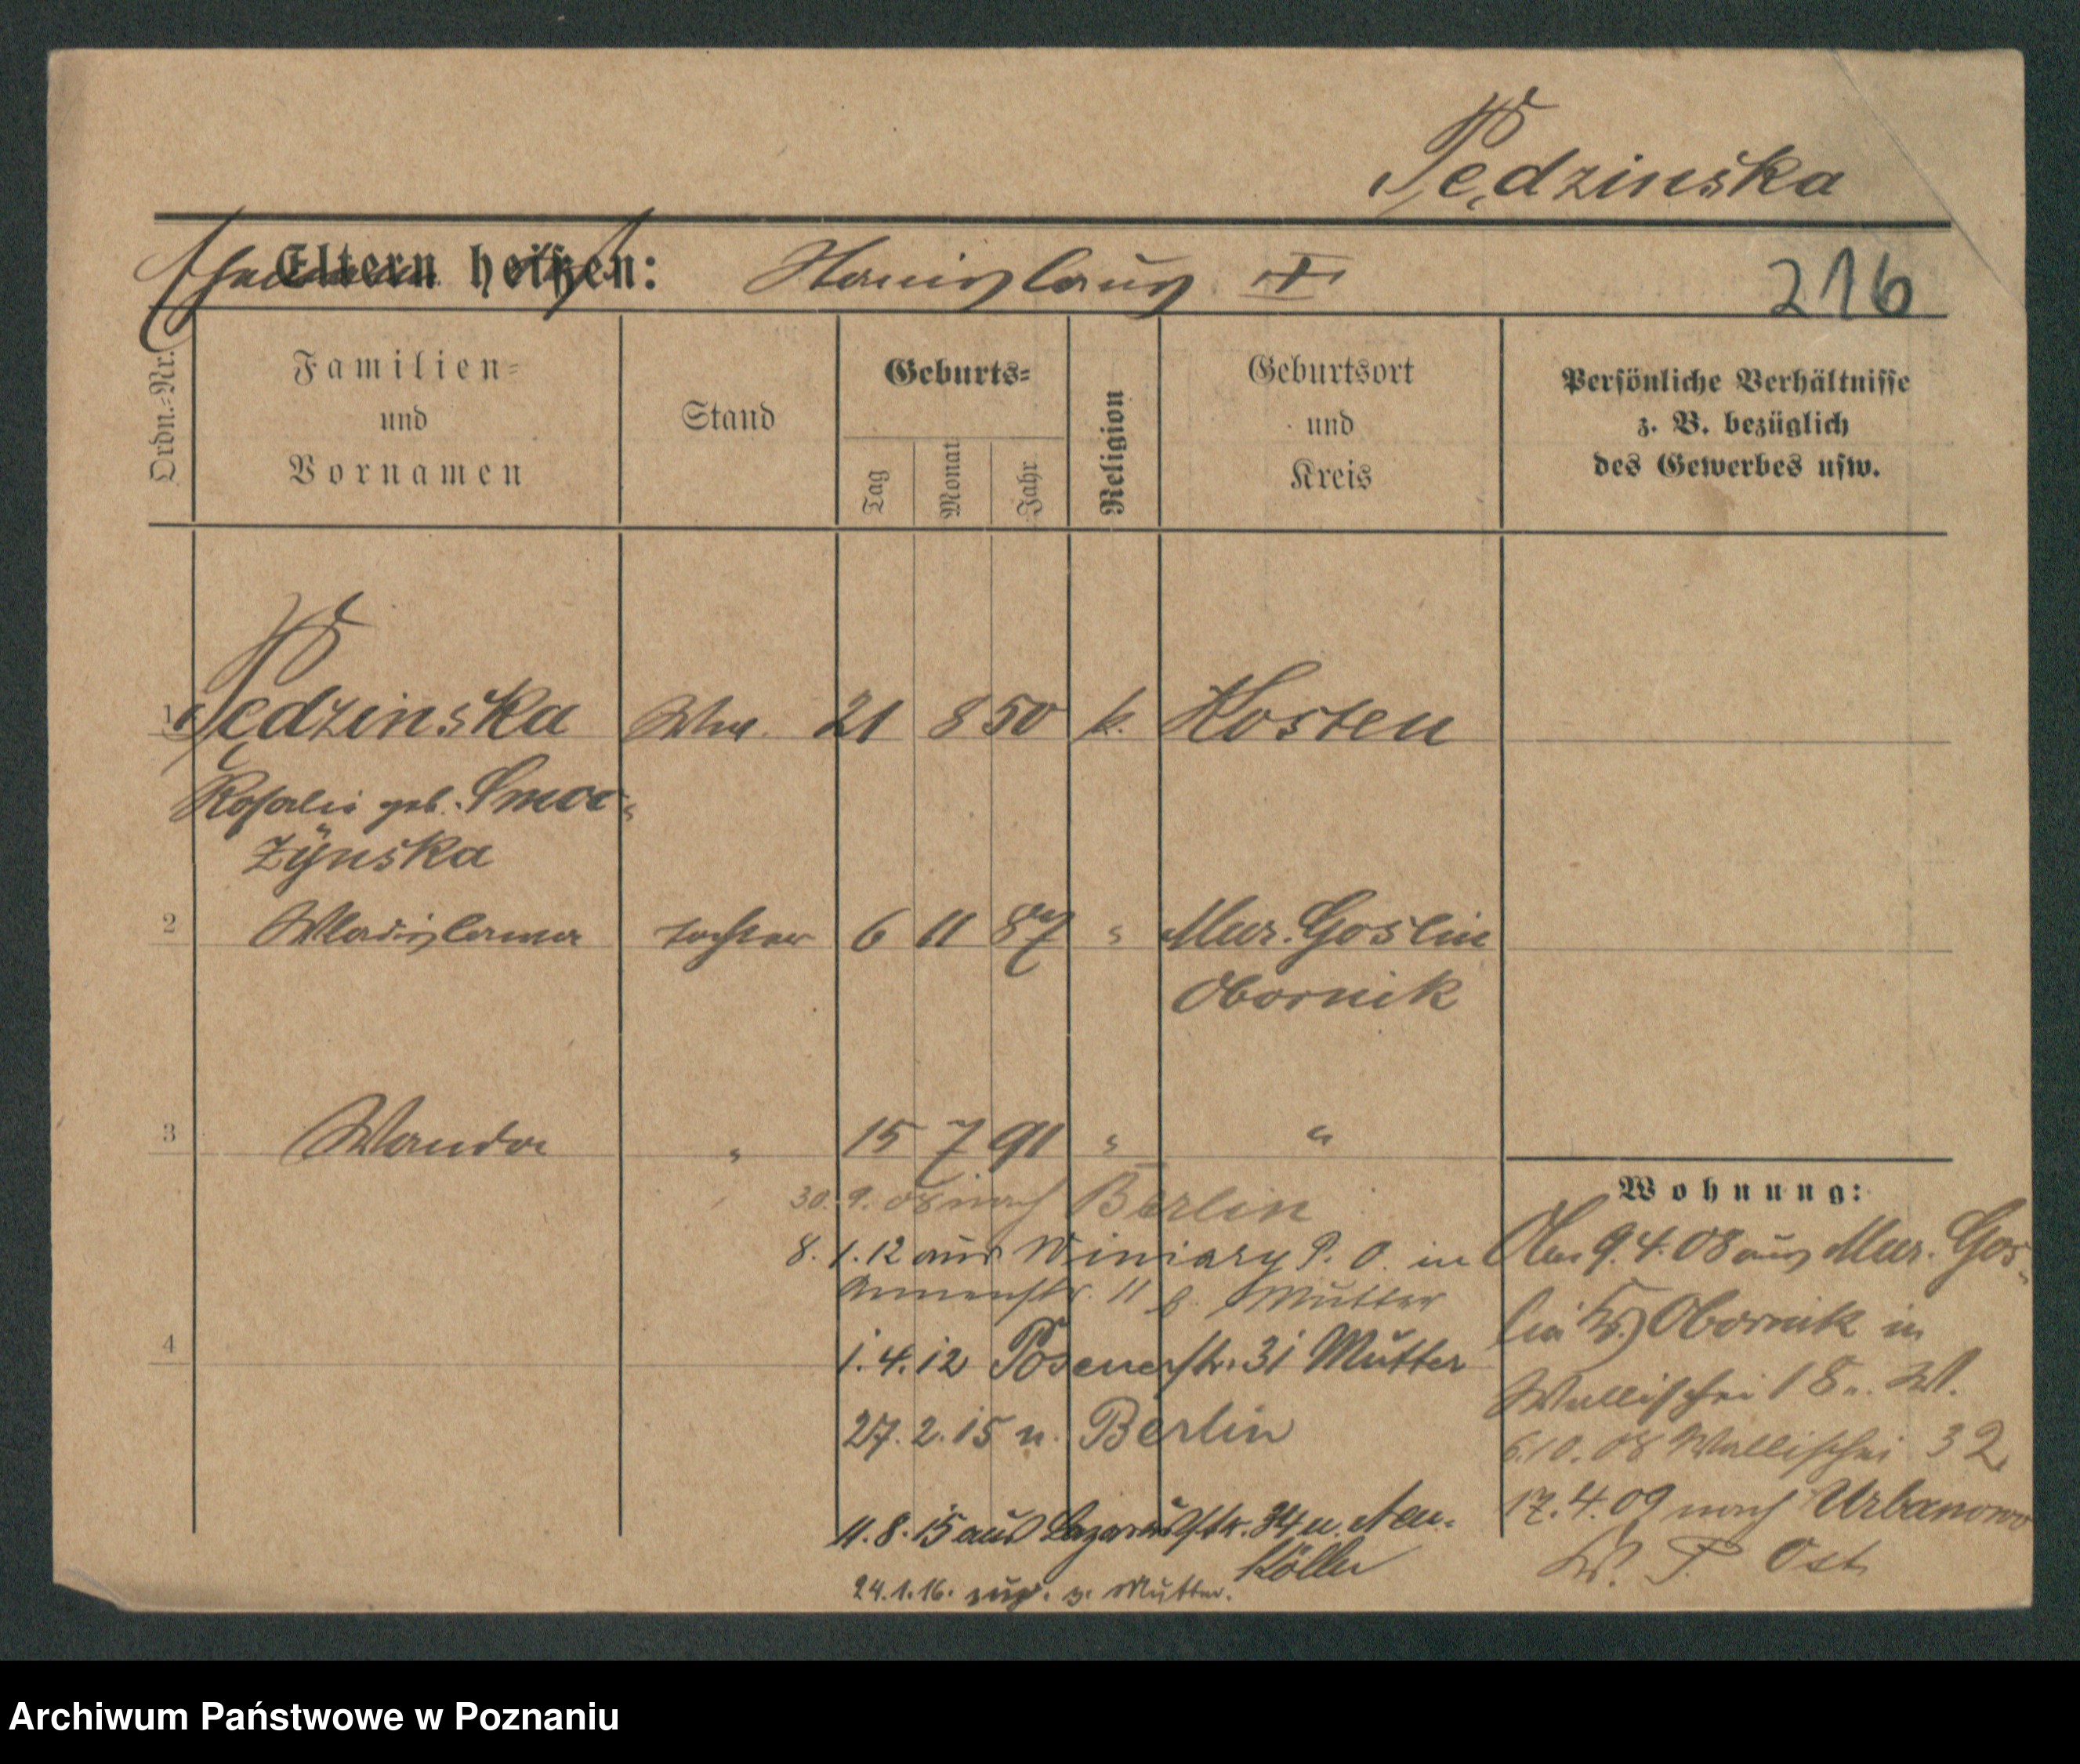 Pędzinska
Eltern heißen: Stanislaus
216
Ordn.-Nr.
Familien-
und
Vornamen
Stand
Geburts-
Tag
Monat
Jahr
Religion
Geburtsort
und
Kreis
Persönliche Verhältnisse
z. B. bezüglich
des Gewerbes usw.
1 Pędzinska Ww. 21 8 50 k. Kosten
Rosalie geb. Smoc-
zynska
2 Wladislawa Tochter 6 11 87 " Mur. Goslin
Obornik
3 Wanda " 15 7 91 " "
30. 9. 08 nach Berlin
8. 1. 12 aus Winiary P. O. in
Annenstr. 11 b. Mutter
4
1. 4. 12 Posenerstr. 31 Mutter
27. 2. 15 n. Berlin
11. 8. 15 aus Lazarusstr. 34 n. Neu-
kölln
24. 1. 16. zug. z. Mutter.
Wohnung:
Am 9. 4. 08 aus Mur. Gos-
lin Kr. Obornik in
Wallischei 18 b. W.
6. 10. 08 Wallischei 32
17. 4. 09 nach Urbanowo
Kr. P. Ost
Archiwum Państwowe w Poznaniu